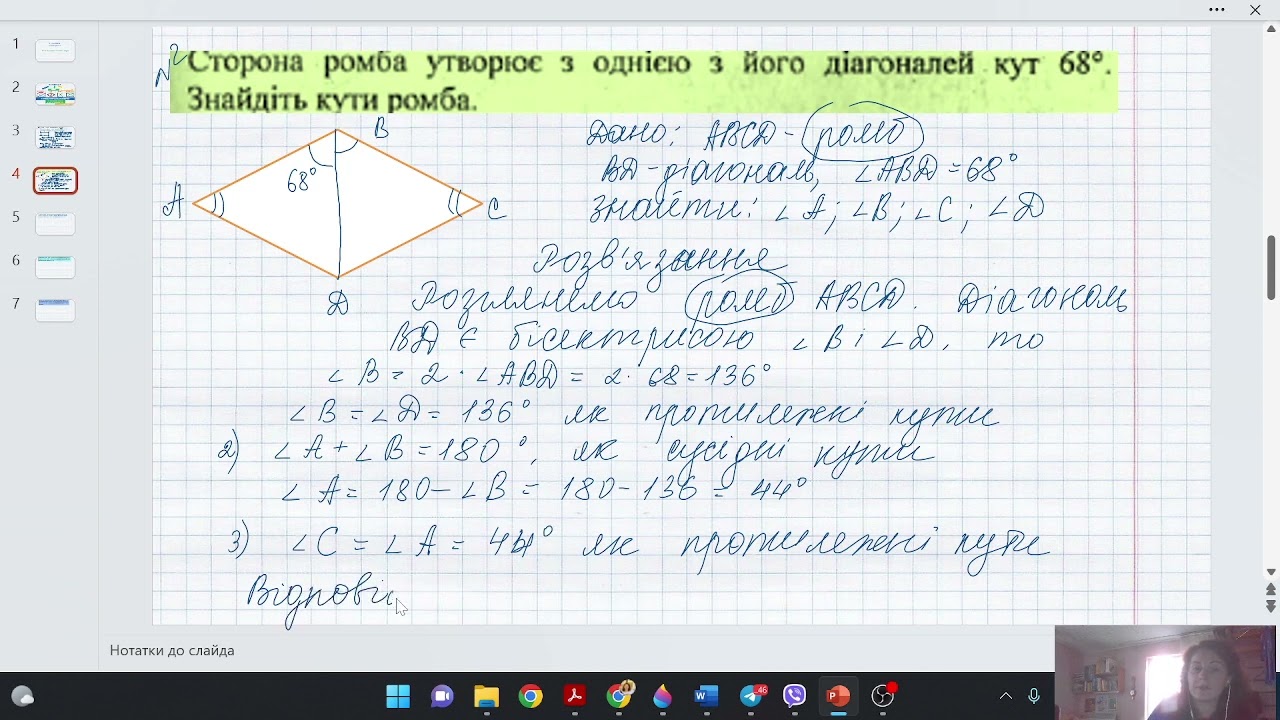 1
2
3
4
5
6
7
N2
Сторона ромба утворює з однією з його діагоналей кут 68°.
Знайдіть кути ромба.
B
68°
A
C
D
Дано: ABCD - ромб
BD - діагональ, ∠ABD = 68°
Знайти: ∠A; ∠B; ∠C; ∠D
Розв'язання
Розглянемо ромб ABCD. Діагональ
BD є бісектрисою ∠B і ∠D, то
∠B = 2 · ∠ABD = 2 · 68 = 136°
∠B = ∠D = 136° як протилежні кути
2) ∠A + ∠B = 180°, як сусідні кути
∠A = 180 - ∠B = 180 - 136 = 44°
3) ∠C = ∠A = 44° як протилежні кути
Відпові
Нотатки до слайда
46